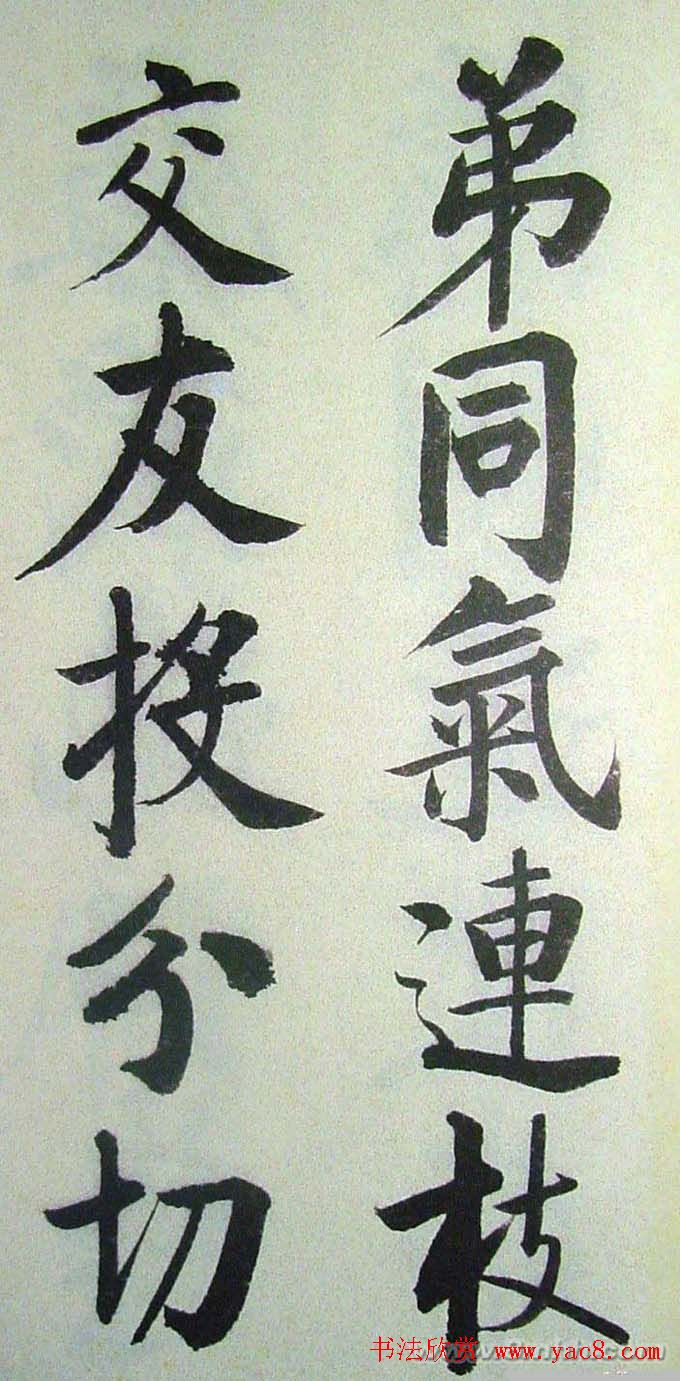 弟同氣連枝
交友投分切
书法欣赏 www.yac8.com